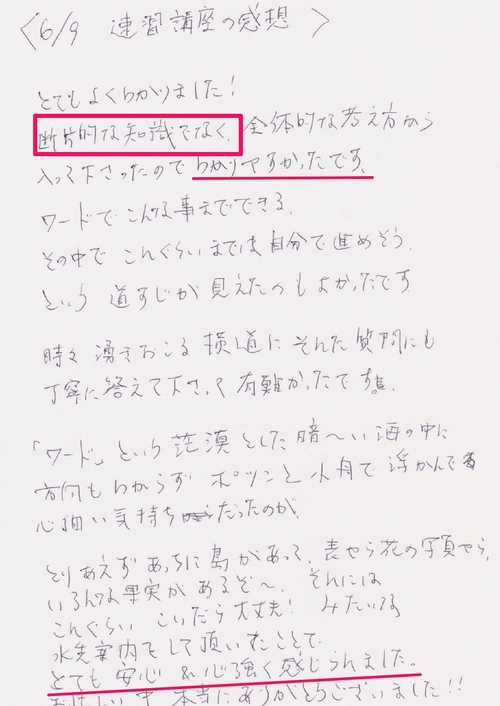 〈6/9 速習講座の感想 〉
とてもよくわかりました!
断片的な知識でなく、全体的な考え方から
入って下さったのでわかりやすかったです。
ワードでこんな事までできる、
その中でこんぐらいまでは自分で進めそう、
という道すじが見えたのもよかったです
時々湧きおこる横道にそれた質問にも
丁寧に答えて下さって有難かったです。
「ワード」という茫漠とした暗~い海の中に
方向もわからずポツンと小舟で浮かんで
心細い気持ちだったのが、
とりあえずあっちに島があって、表やら花の写真やら、
いろんな果実があるぞ~、それには
こんぐらいこいだら大丈夫! みたいな
水先案内をして頂いたことで
とても安心&心強く感じられました。
本当にありがとうございました!!